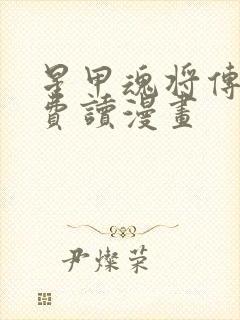 星甲魂将傳
費讀漫畫
尹燦荣